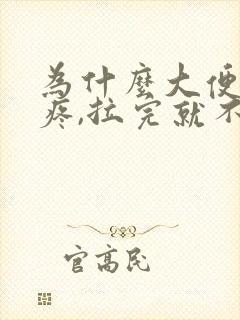 為什麼大便
疼,拉完就不
官高民